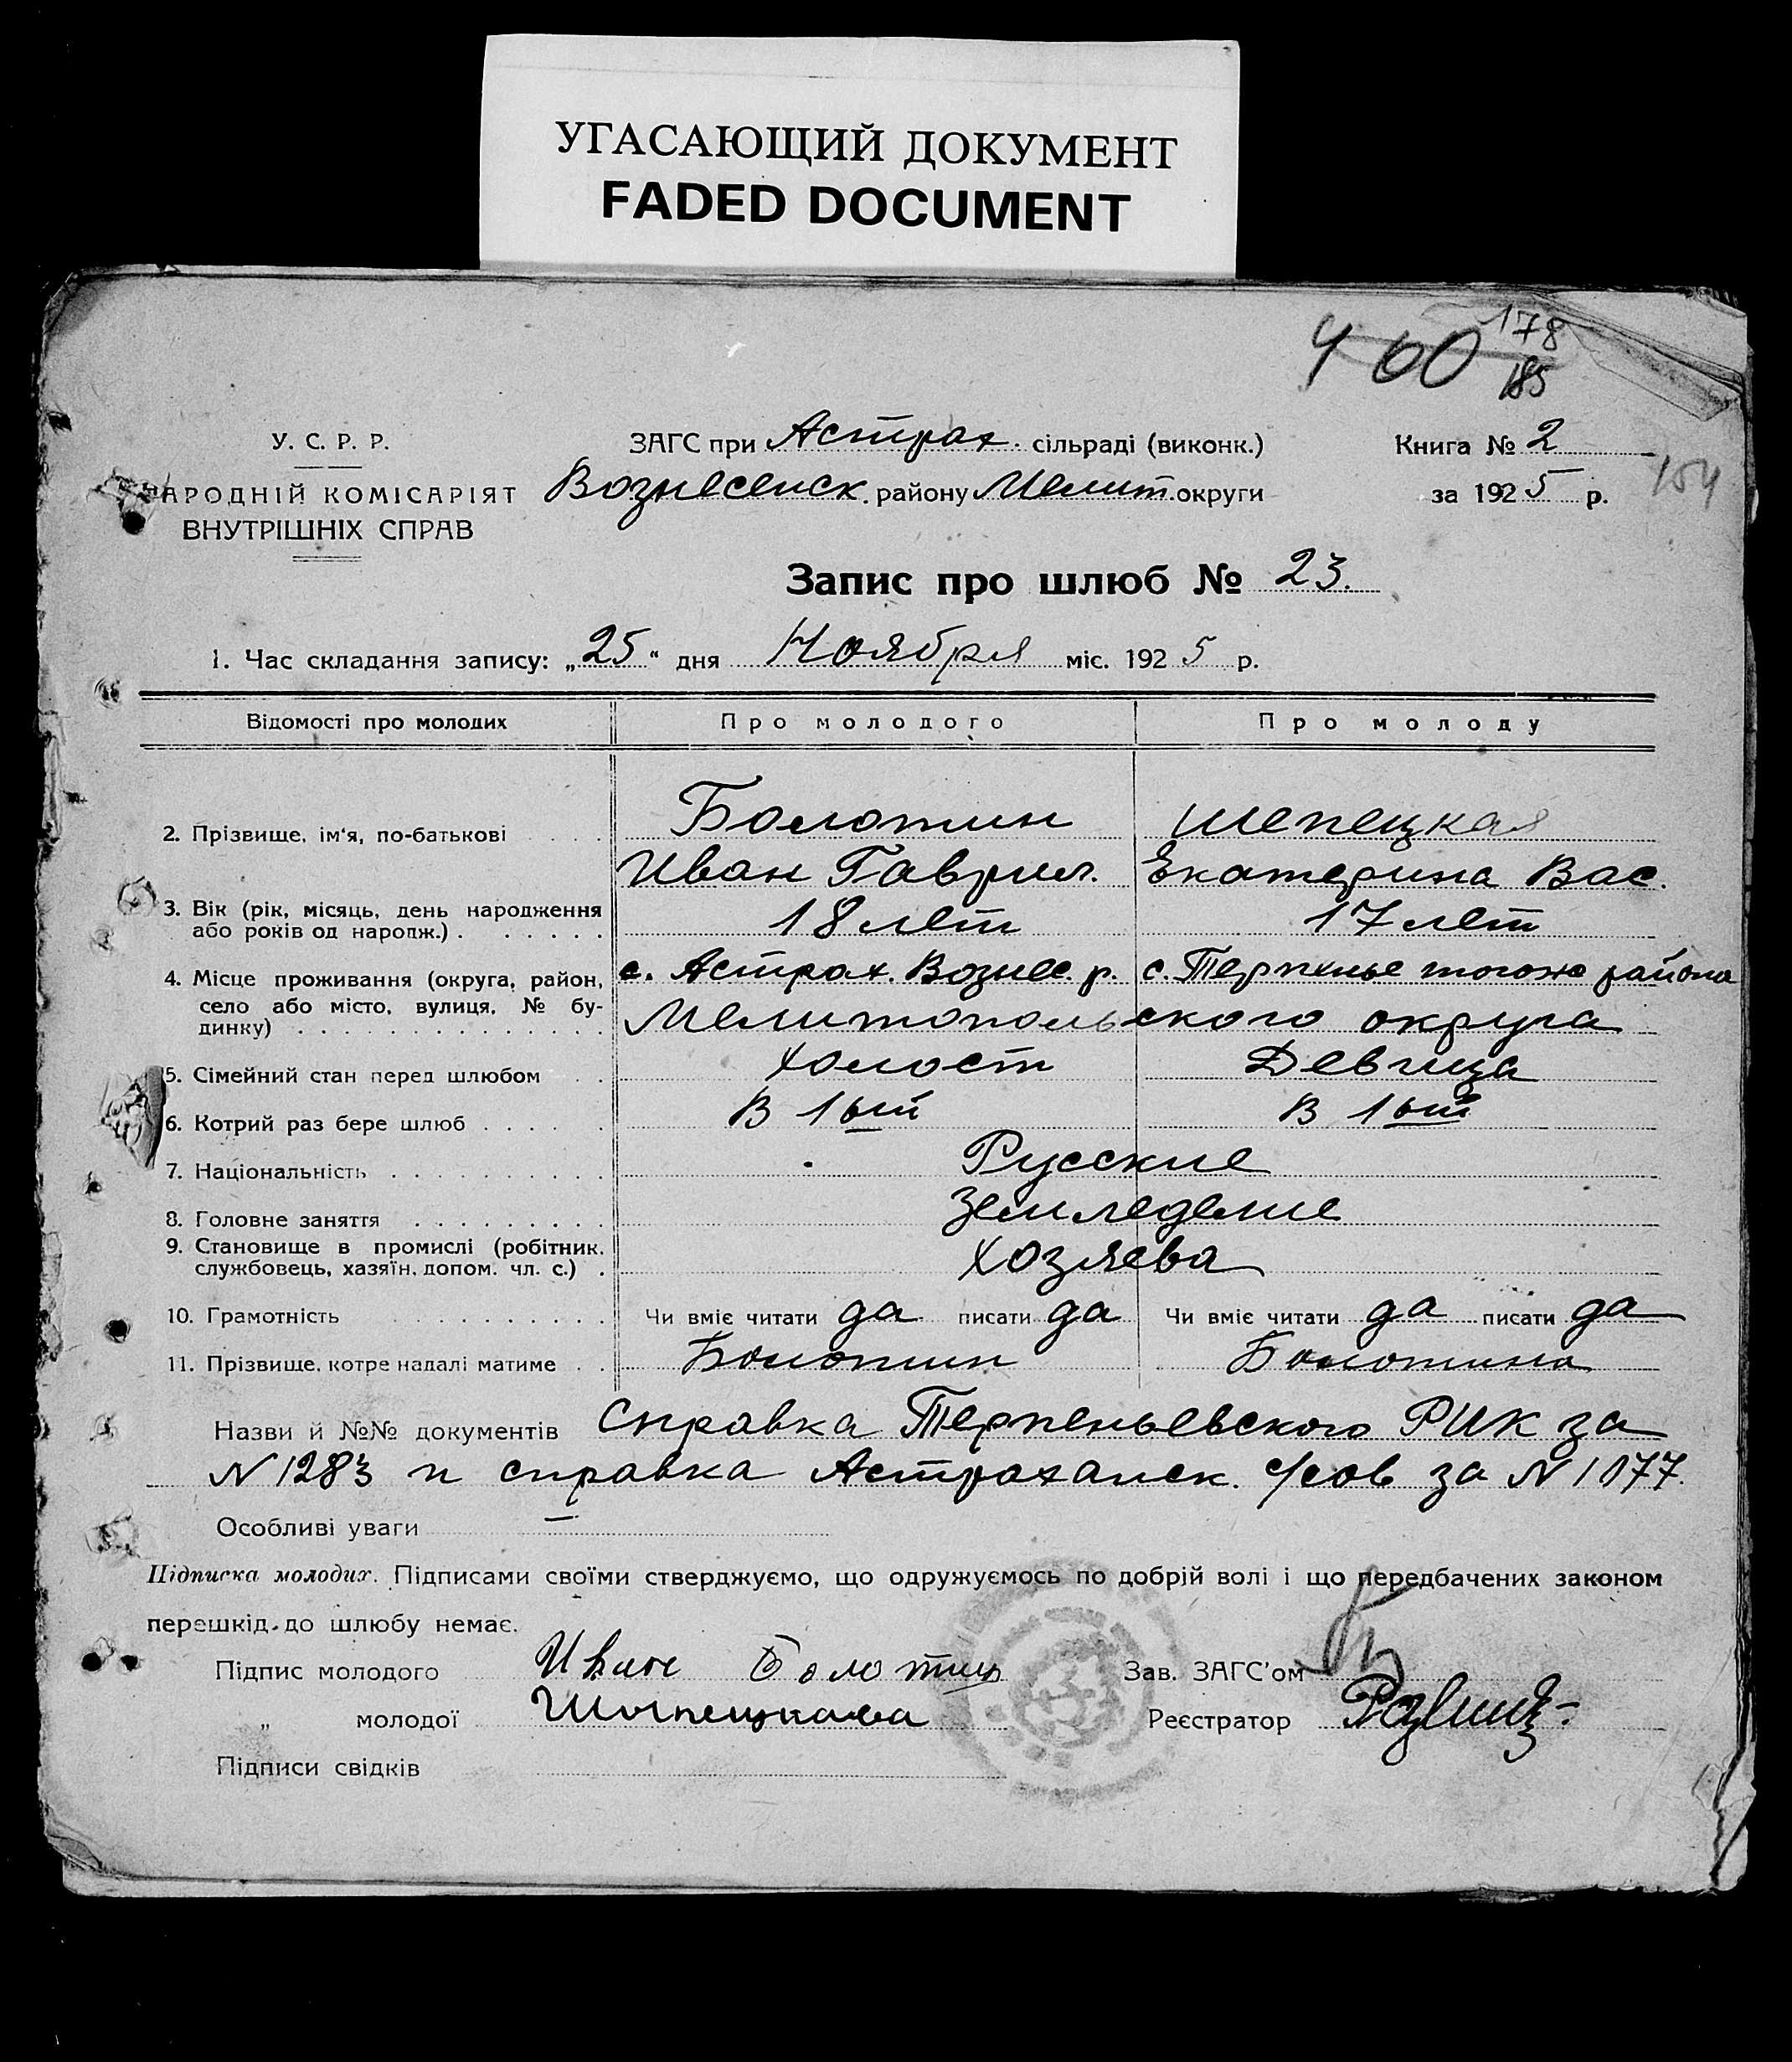 УГАСАЮЩИЙ ДОКУМЕНТ
FADED DOCUMENT
400 178
185
154
У. С. Р. Р.
НАРОДНІЙ КОМІСАРІЯТ
ВНУТРІШНІХ СПРАВ
ЗАГС при Астрах. сільраді (виконк.)
Вознесенск. району Мелит. округи
Книга № 2
за 1925 р.
Запис про шлюб № 23.
1. Час складання запису: „25“ дня Ноября міс. 1925 р.
Відомості про молодих Про молодого Про молоду
2. Прізвище, ім'я, по-батькові Болотин Шепецкая
Иван Гаврил. Екатерина Вас.
3. Вік (рік, місяць, день народження
або років од народж.) 18 лет 17 лет
4. Місце проживання (округа, район, с. Астрах. Вознес. р. с. Терпенье тогоже района
село або місто, вулиця, № бу-
динку) Мелитопольского округа
5. Сімейний стан перед шлюбом Холост Девица
6. Котрий раз бере шлюб В 1ый В 1ый
7. Національність Русские
8. Головне заняття Земледелие
9. Становище в промислі (робітник,
службовець, хазяїн, допом. чл. с.) Хозяева
10. Грамотність Чи вміє читати да писати да Чи вміє читати да писати да
11. Прізвище, котре надалі матиме Болотин Болотина
Назви й №№ документів Справка Терпеньевского РИК за
N 1283 и справка Астраханск. с/сов за N 1077.
Особливі уваги —
Підписка молодих. Підписами своїми стверджуємо, що одружуємось по добрій волі і що передбачених законом
перешкід до шлюбу немає.
Підпис молодого Иван Болотин Зав. ЗАГС'ом
„ молодої Реєстратор
Підписи свідків